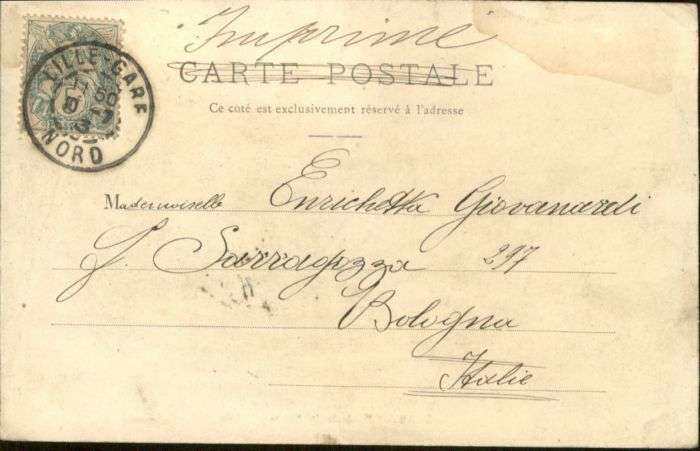 Imprimé
CARTE POSTALE
Ce coté est exclusivement réservé à l'adresse
LILLE-GARE
NORD
Mademoiselle Enrichetta Giovanardi
S. Sarragozza 297
Bologna
Italie